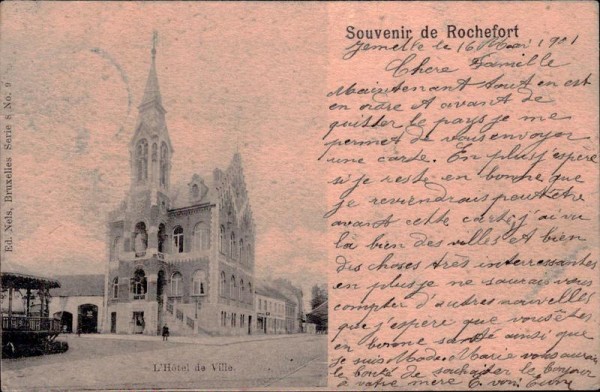 Souvenir de Rochefort
Jemelle le 16 Mai 1901
Chere Famille
Maintenant tout en est
en ordre et avant de
quitter le pays je me
permet de vous envoyer
une carte. En plus j'espère
si je reste en bonne que
je reviendrais peut être
avant cette carte, j'ai vu
là bien des villes et bien
des choses très interressantes
en plus je ne saurais vous
compter d'autres nouvelles
que j'espere que vous êtes
en bonne santé ainsi que
je suis Made. Marie vous aurai
la bonté de souhaiter le bonjour
à votre mère
Ed. Nels, Bruxelles Serie 8 No. 9
L'Hôtel de Ville.